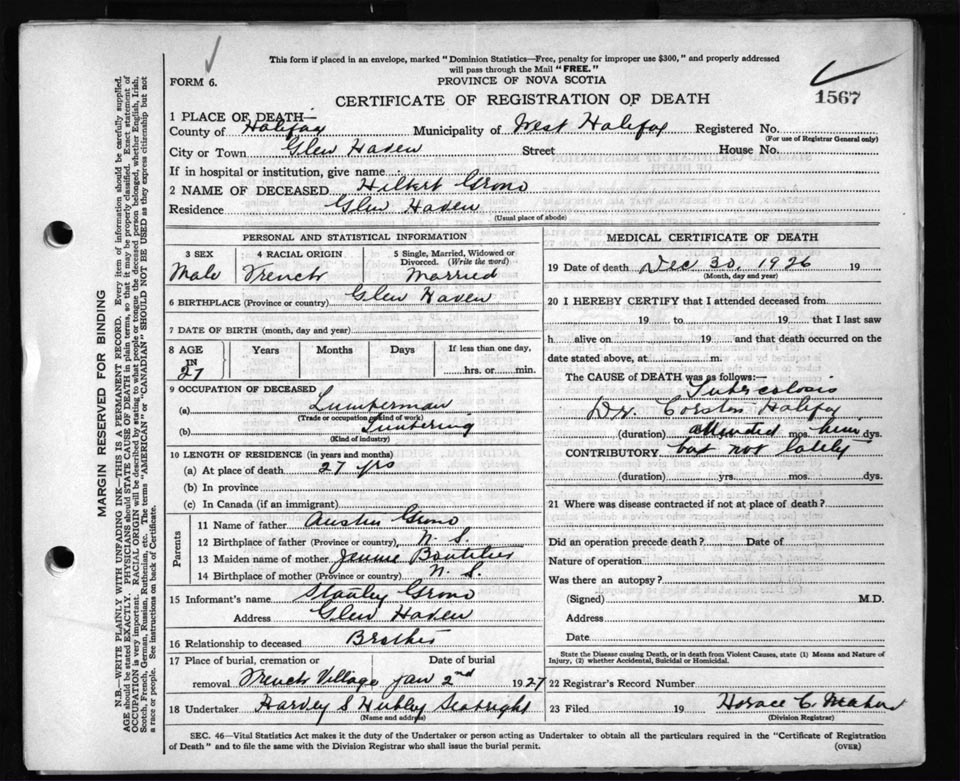 This form if placed in an envelope, marked "Dominion Statistics—Free, penalty for improper use $300," and properly addressed
will pass through the Mail "FREE."
FORM 6.
PROVINCE OF NOVA SCOTIA
CERTIFICATE OF REGISTRATION OF DEATH
1567
1 PLACE OF DEATH—
County of Halifax Municipality of West Halifax Registered No.
(For use of Registrar General only)
City or Town Glen Haven Street House No.
If in hospital or institution, give name
2 NAME OF DECEASED Hilbert Grono
Residence Glen Haven
(Usual place of abode)
PERSONAL AND STATISTICAL INFORMATION
3 SEX 4 RACIAL ORIGIN 5 Single, Married, Widowed or Divorced. (Write the word)
Male French Married
6 BIRTHPLACE (Province or country) Glen Haven
7 DATE OF BIRTH (month, day and year)
8 AGE IN Years Months Days If less than one day,
27 hrs. or min.
9 OCCUPATION OF DECEASED
(a) Lumberman
(Trade or occupation or kind of work)
(b) Lumbering
(Kind of industry)
10 LENGTH OF RESIDENCE (in years and months)
(a) At place of death 27 yrs
(b) In province
(c) In Canada (if an immigrant)
Parents
11 Name of father Austin Grono
12 Birthplace of father (Province or country) N. S.
13 Maiden name of mother Jennie Boutilier
14 Birthplace of mother (Province or country) N. S.
15 Informant's name Stanley Grono
Address Glen Haven
16 Relationship to deceased Brother
17 Place of burial, cremation or removal Date of burial
French Village Jan 2nd 1927
18 Undertaker Harvey S Hubley Seabright
(Name and address)
MEDICAL CERTIFICATE OF DEATH
19 Date of death Dec 30, 1926 19
(Month, day and year)
20 I HEREBY CERTIFY that I attended deceased from
19 to 19 that I last saw
h alive on 19 and that death occurred on the
date stated above, at m.
The CAUSE OF DEATH was as follows:—
Tubercolosis
Dr. Corston Halifax
(duration) attended mos. him dys.
CONTRIBUTORY but not lately
(duration) yrs. mos. dys.
21 Where was disease contracted if not at place of death?
Did an operation precede death? Date of
Nature of operation
Was there an autopsy?
(Signed) M.D.
Address
Date
State the Disease causing Death, or in death from Violent Causes, state (1) Means and Nature of
Injury, (2) whether Accidental, Suicidal or Homicidal.
22 Registrar's Record Number
23 Filed 19 Horace C.
(Division Registrar)
SEC. 46—Vital Statistics Act makes it the duty of the Undertaker or person acting as Undertaker to obtain all the particulars required in the "Certificate of Registration
of Death" and to file the same with the Division Registrar who shall issue the burial permit.
(OVER)
MARGIN RESERVED FOR BINDING
N.B.—WRITE PLAINLY WITH UNFADING INK—THIS IS A PERMANENT RECORD. Every item of information should be carefully supplied.
AGE should be stated EXACTLY. PHYSICIANS should STATE CAUSE OF DEATH in plain terms, so that it may be properly classified. Exact statement of
OCCUPATION is very important. RACIAL ORIGIN will be described by stating to what people or tongue the deceased person belonged, whether English, Irish,
Scotch, French, German, Russian, Ruthenian, etc. The terms "AMERICAN" or "CANADIAN" SHOULD NOT BE USED as they express citizenship but not
a race or people. See instructions on back of Certificate.